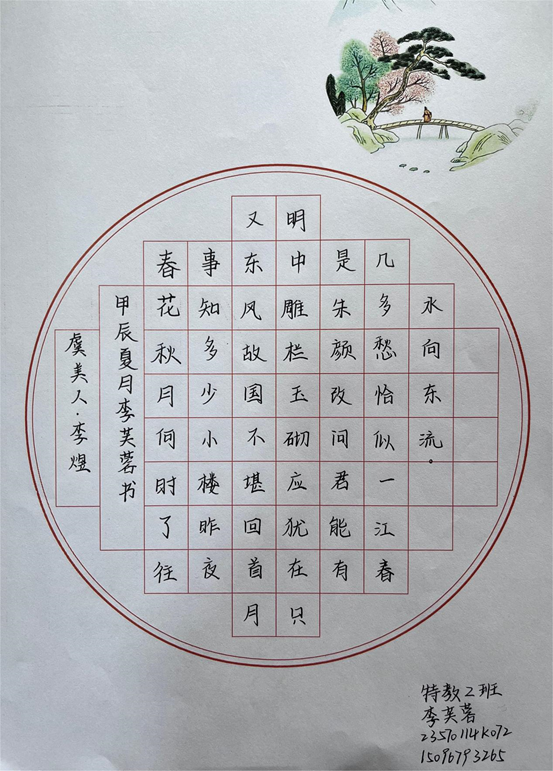 虞美人·李煜
甲辰夏月李芙蓉书
春花秋月何时了往
事知多少小楼昨夜
又东风故国不堪回首月
明中雕栏玉砌应犹在只
是朱颜改问君能有
几多愁恰似一江春
水向东流。
特教2班
李芙蓉
23570114K072
15096793265